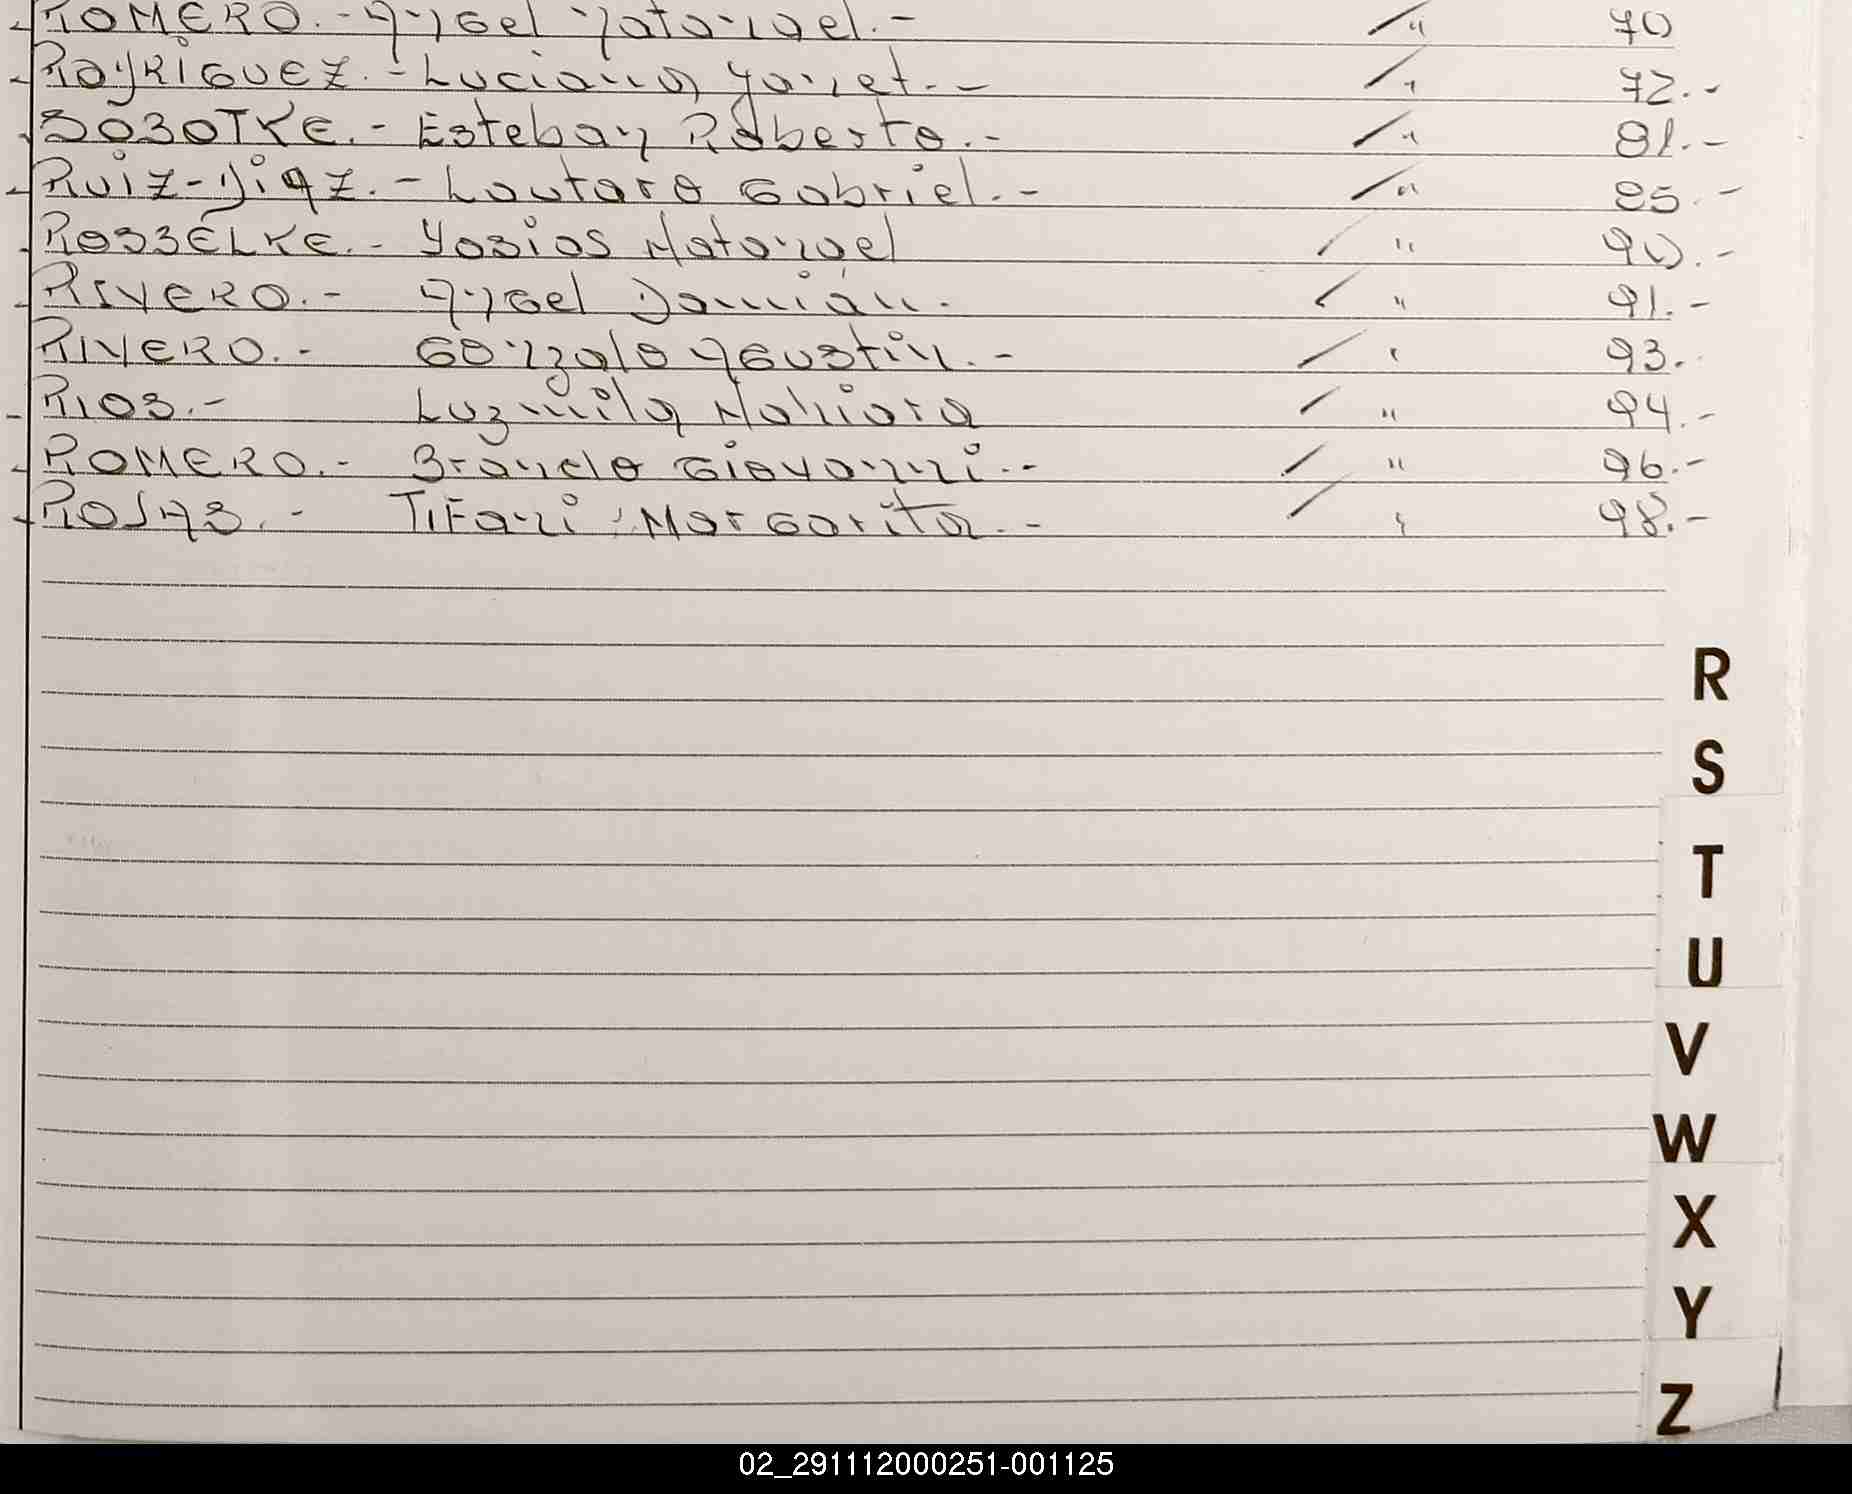 ROMERO.- Angel Natanael.- / " 70
RODRIGUEZ.- Luciana Yanet.- / " 72.-
SOBOTKE.- Esteban Roberto.- / " 81.-
Ruiz-Diaz.- Lautaro Gabriel.- / " 85.-
ROSSELKE.- Yosias Natanael / " 90.-
RIVERO.- Angel Damián. / " 91.-
RIVERO.- Gonzalo Agustin.- / " 93.-
RIOS.- Luzmila Nahiara / " 94.-
ROMERO.- Brando Giovanni.- / " 96.-
ROJAS.- Tifani Margarita.- / " 98.-
R
S
T
U
V
W
X
Y
Z
02_291112000251-001125